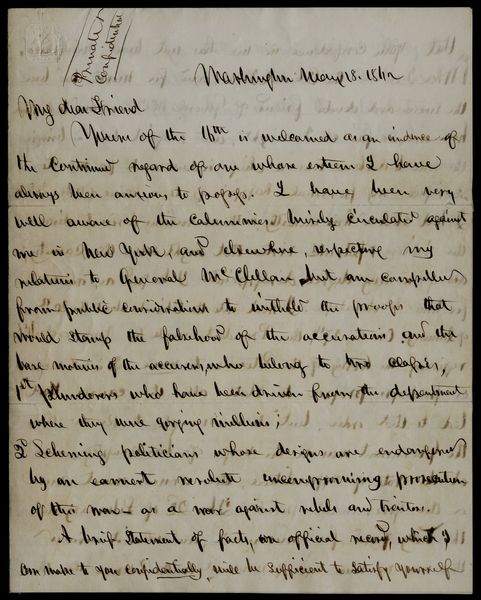 Private &
Confidential
Washington May 18. 1862
My dear Friend
Yours of the 16th is welcomed as an evidence of
the continued regard of one whose esteem I have
always been anxious to possess. I have been very
well aware of the calumnies busily circulated against
me in New York and elsewhere, respecting my
relations to General McClellan but am compelled
from public considerations to withhold the proofs that
would stamp the falsehood of the accusations and the
base motives of the accusers, who belong to two classes,
1st Plunderers who have been driven from the department
where they were gorging millions;
2d Scheming politicians whose designs are endangered
by an earnest resolute uncompromising prosecution
of this war — as a war against rebels and traitors.
A brief statement of facts, on official record, which I
can make to you confidentially, will be sufficient to satisfy yourself